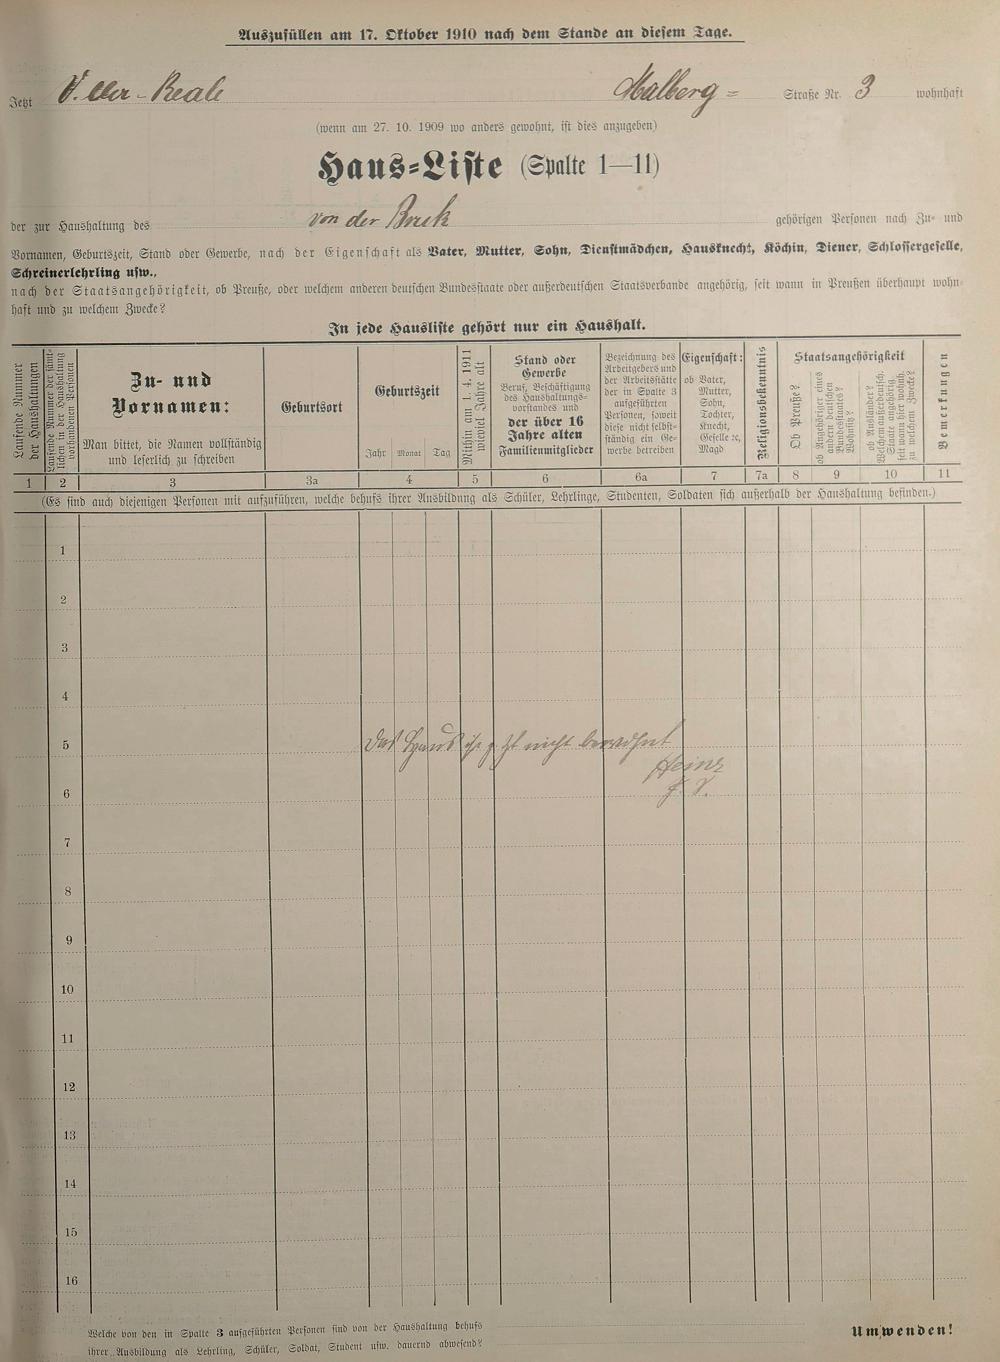 Auszufüllen am 17. Oktober 1910 nach dem Stande an diesem Tage.
Jetzt Malberg= Straße Nr. 3 wohnhaft
(wenn am 27. 10. 1909 wo anders gewohnt, ist dies anzugeben)
Haus=Liste (Spalte 1—11)
der zur Haushaltung des von der Bruck gehörigen Personen nach Zu- und
Vornamen, Geburtszeit, Stand oder Gewerbe, nach der Eigenschaft als Vater, Mutter, Sohn, Dienstmädchen, Hausknecht, Köchin, Diener, Schlossergeselle,
Schreinerlehrling usw.,
nach der Staatsangehörigkeit, ob Preuße, oder welchem anderen deutschen Bundesstaate oder außerdeutschen Staatsverbande angehörig, seit wann in Preußen überhaupt wohn-
haft und zu welchem Zwecke?
In jede Hausliste gehört nur ein Haushalt.
Laufende Nummer
der Haushaltungen
Laufende Nummer der sämt-
lichen in der Haushaltung
vorhandenen Personen
Zu- und
Vornamen:
Man bittet, die Namen vollständig
und leserlich zu schreiben
Geburtsort
Geburtszeit
Jahr Monat Tag
Mithin am 1. 4. 1911
wieviel Jahre alt
Stand oder
Gewerbe
Beruf, Beschäftigung
des Haushaltungs-
vorstandes und
der über 16
Jahre alten
Familienmitglieder
Bezeichnung des
Arbeitgebers und
der Arbeitsstätte
der in Spalte 3
aufgeführten
Personen, soweit
diese nicht selbst-
ständig ein Ge-
werbe betreiben
Eigenschaft:
ob Vater,
Mutter,
Sohn,
Tochter,
Knecht,
Geselle ꝛc,
Magd
Religionsbekenntnis
Staatsangehörigkeit
Ob Preuße?
ob Angehöriger eines
andern deutschen
Bundesstaates?
Wohnsitz?
ob Ausländer?
Welchem außerdeutsch.
Staate angehörig,
seit wann hier wohnh.
zu welchem Zwecke?
Bemerkungen
1 2 3 3a 4 5 6 6a 7 7a 8 9 10 11
(Es sind auch diejenigen Personen mit aufzuführen, welche behufs ihrer Ausbildung als Schüler, Lehrlinge, Studenten, Soldaten sich außerhalb der Haushaltung befinden.)
1
2
3
4
5 Das Haus ist nicht bewohnt
Heinz
6
7
8
9
10
11
12
13
14
15
16
Welche von den in Spalte 3 aufgeführten Personen sind von der Haushaltung behufs
ihrer Ausbildung als Lehrling, Schüler, Soldat, Student usw. dauernd abwesend?
Umwenden!